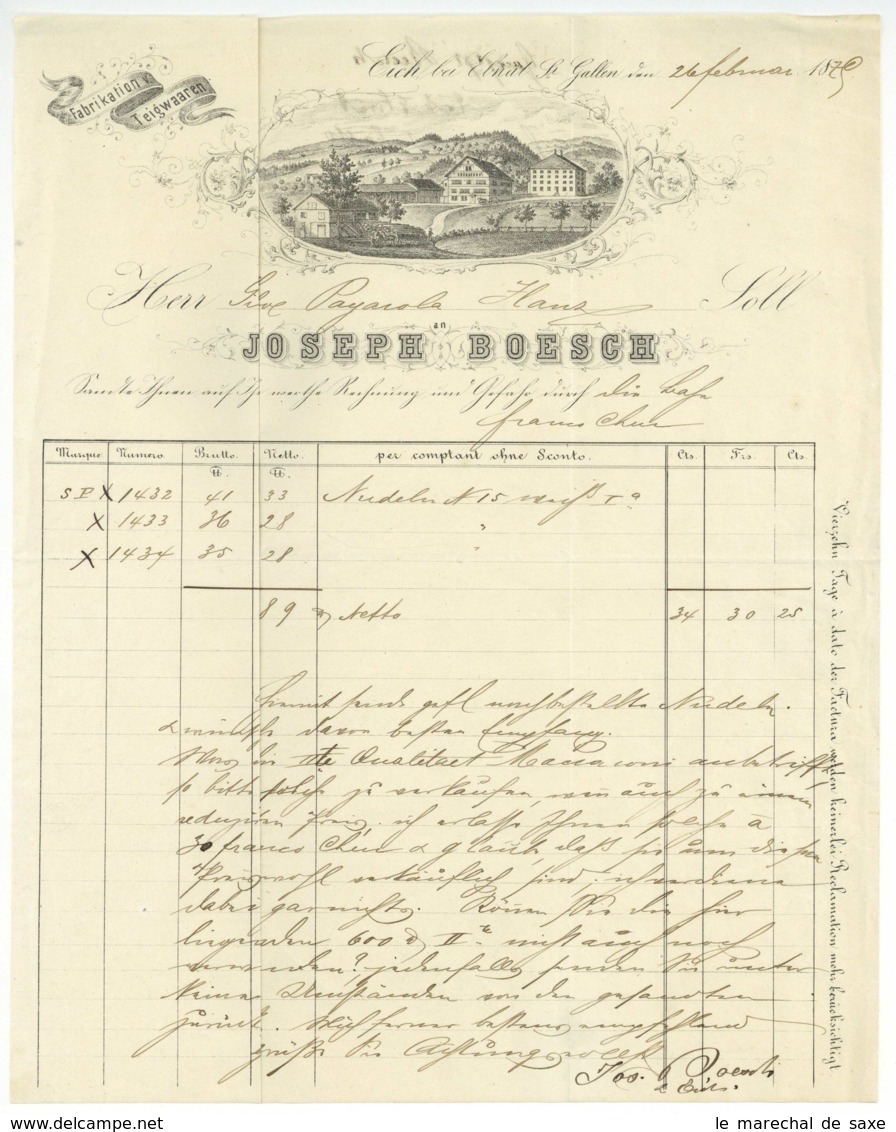 Fabrikation v.
Teigwaaren
Eich bei Ebnat St Gallen den 26 februar 187
Herr Hanz Soll
an
JOSEPH BOESCH
Sandte Ihnen auf Ihr werthe Rechnung und Gefahr durch die Bahn
franco Chur
Marque Numero. Brutto. Netto. per comptant ohne Sconto. Cts. Frs. Cts.
℔. ℔.
S P X 1432 41 33 Nudeln N 15 weiß Iª
X 1433 36 28 "
X 1434 35 28 "
89 ℔ Netto 34 30 25
Hiemit sende gefl nachbestellte Nudeln.
& wünsche davon besten Empfang.
Was die IIte Qualitaet Macaroni anbetrifft,
so bitte solche zu verkaufen, wenn auch zu einem
reduzirten Preis. ich erlasse Ihnen solche à
30 franco Chur & glaube, daß sie zum
Preis wohl verkäuflich sind; ich verdiene
dabei gar nichts. Können Sie die hier
liegenden 600 ℔ IIte nicht auch noch
verwenden? jedenfalls senden Sie unter
keinen Umständen von den gesandten
zurück. Mich ferner bestens empfehlend
grüßt Sie Achtungsvollst
Jos. Boesch
z Eich.
Vierzehn Tage à dato der Factura werden keinerlei Reclamation mehr berücksichtigt
le marechal de saxe